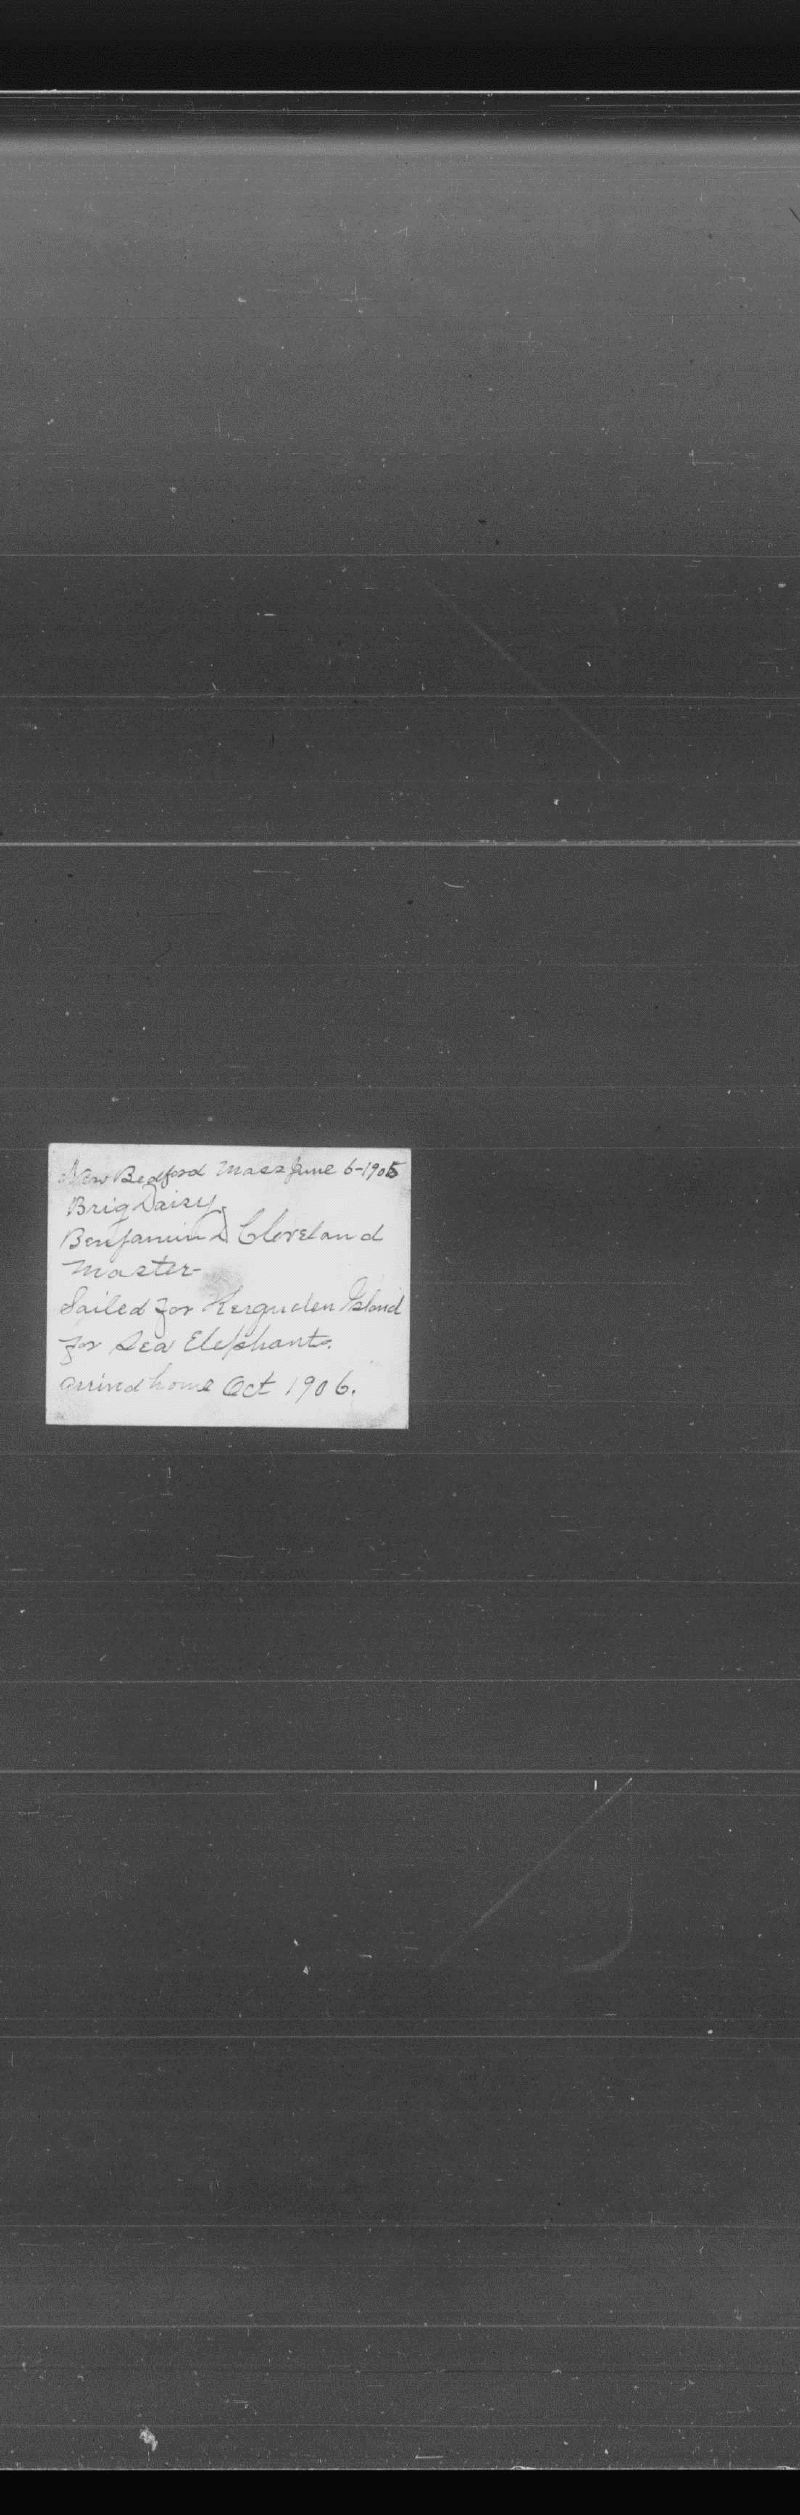 New Bedford Mass June 6-1905
Brig Daisy
Benjamin D Cleveland
Master-
Sailed for Kerguelen Island
for Sea Elephants.
arrived home Oct 1906.